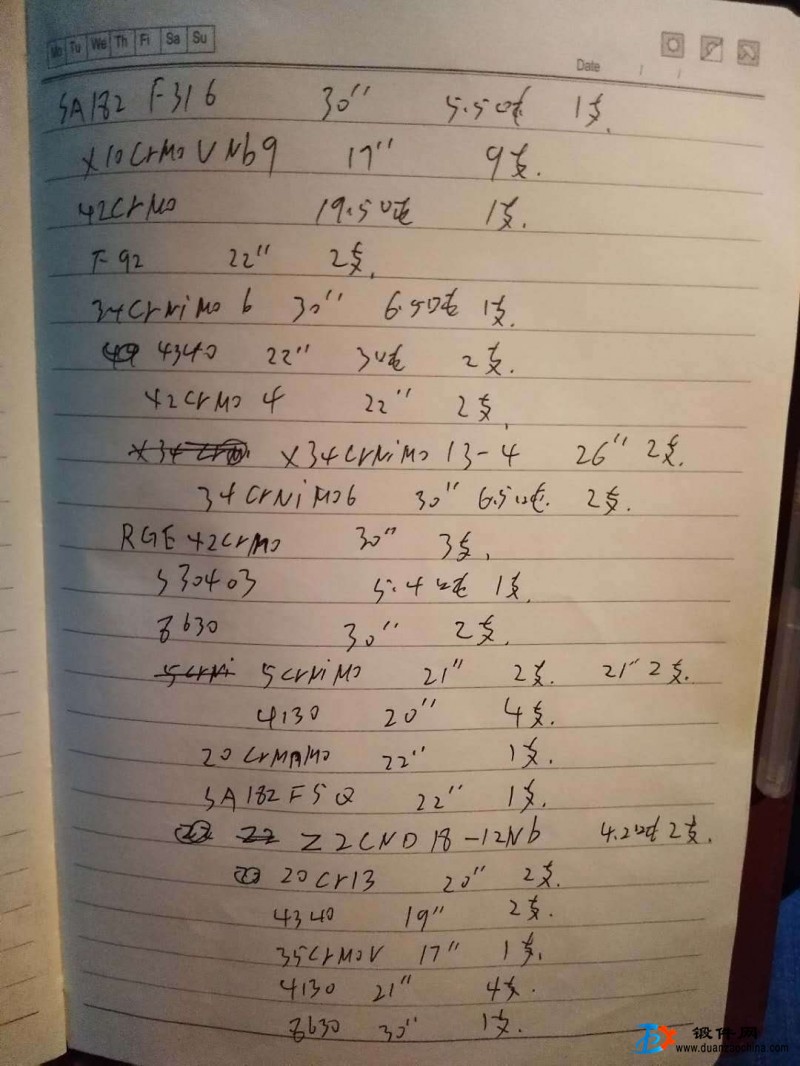 Mo Tu We Th Fi Sa Su
Date / /
SA182 F316 30" 5.5吨 1支.
X10CrMoVNb9 17" 9支.
42CrMo 19.5吨 1支.
F92 22" 2支.
34CrNiMo6 30" 6.5吨 1支.
4340 22" 3吨 2支.
42CrMo4 22" 2支.
X34CrNiMo 13-4 26" 2支.
34CrNiMo6 30" 6.5吨. 2支.
RGE42CrMo 30" 3支.
S30403 5.4吨 1支.
8630 30" 2支.
5CrNi 5CrNiMo 21" 2支. 21" 2支.
4130 20" 4支.
20CrMnMo 22" 1支.
SA182F5Q 22" 1支.
Z2CND18-12Nb 4.2吨 2支.
20Cr13 20" 2支.
4340 19" 2支.
35CrMoV 17" 1支.
4130 21" 4支.
8630 30" 1支.
锻件网
www.duanjianchina.com